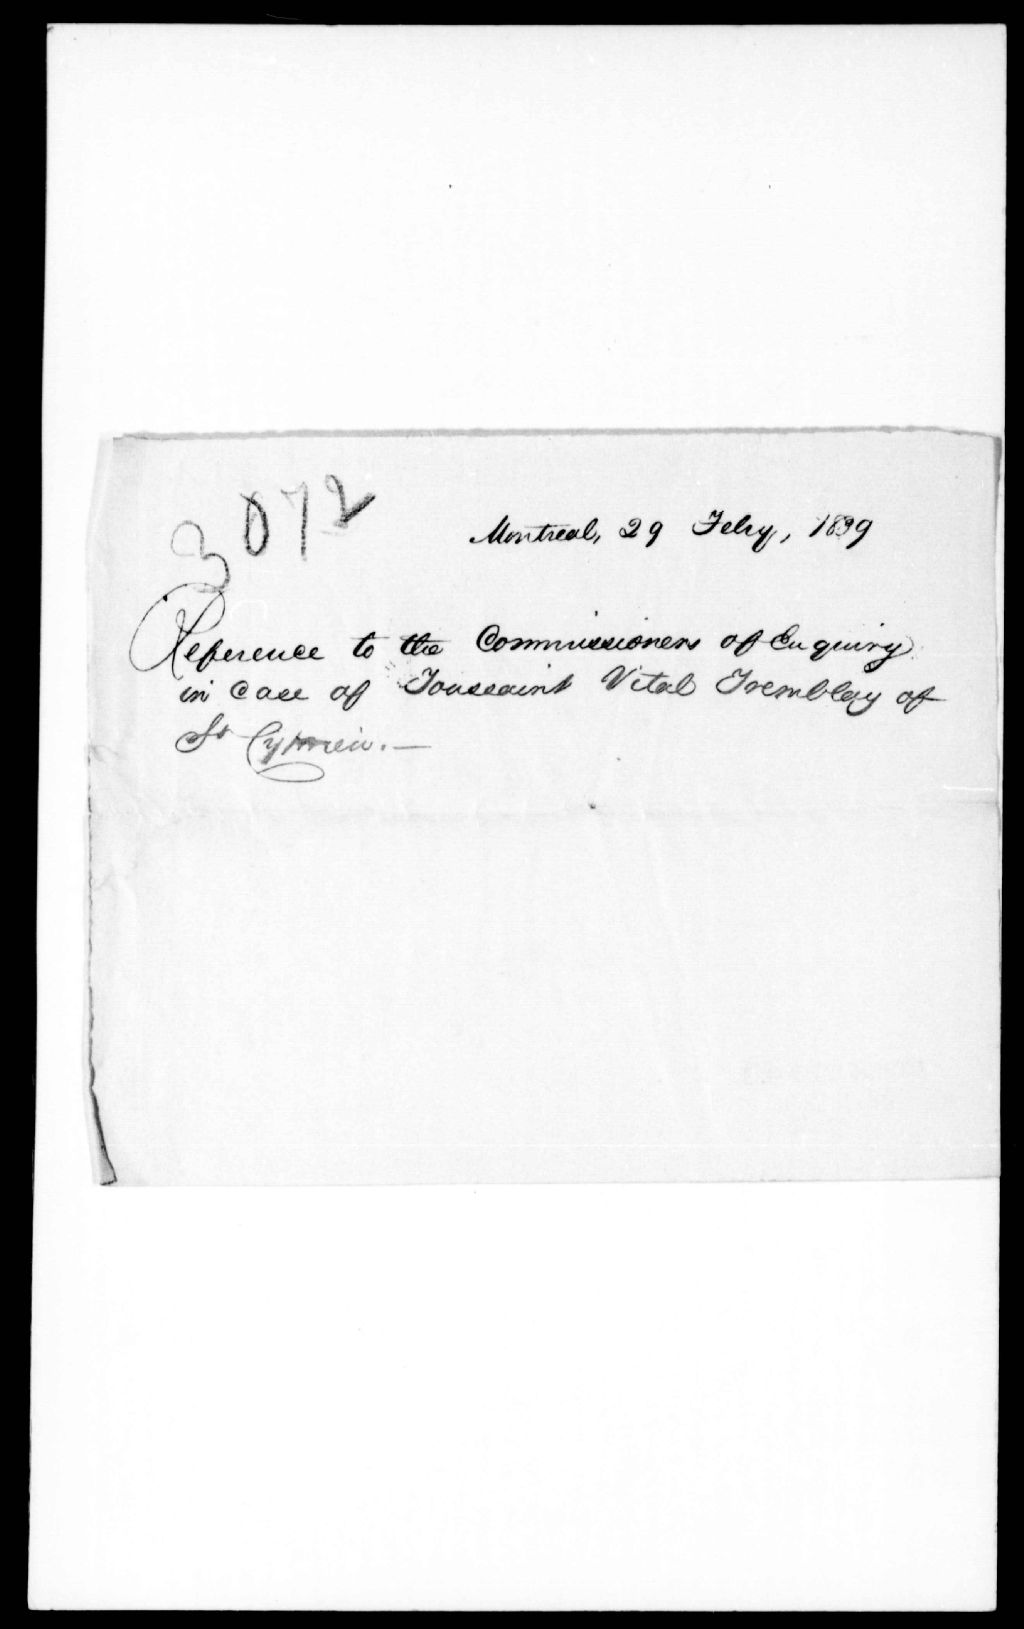 3072
Montreal, 29 Feby, 1839
Reference to the Commissioners of Enquiry
in case of Toussaint Vital Tremblay of
St